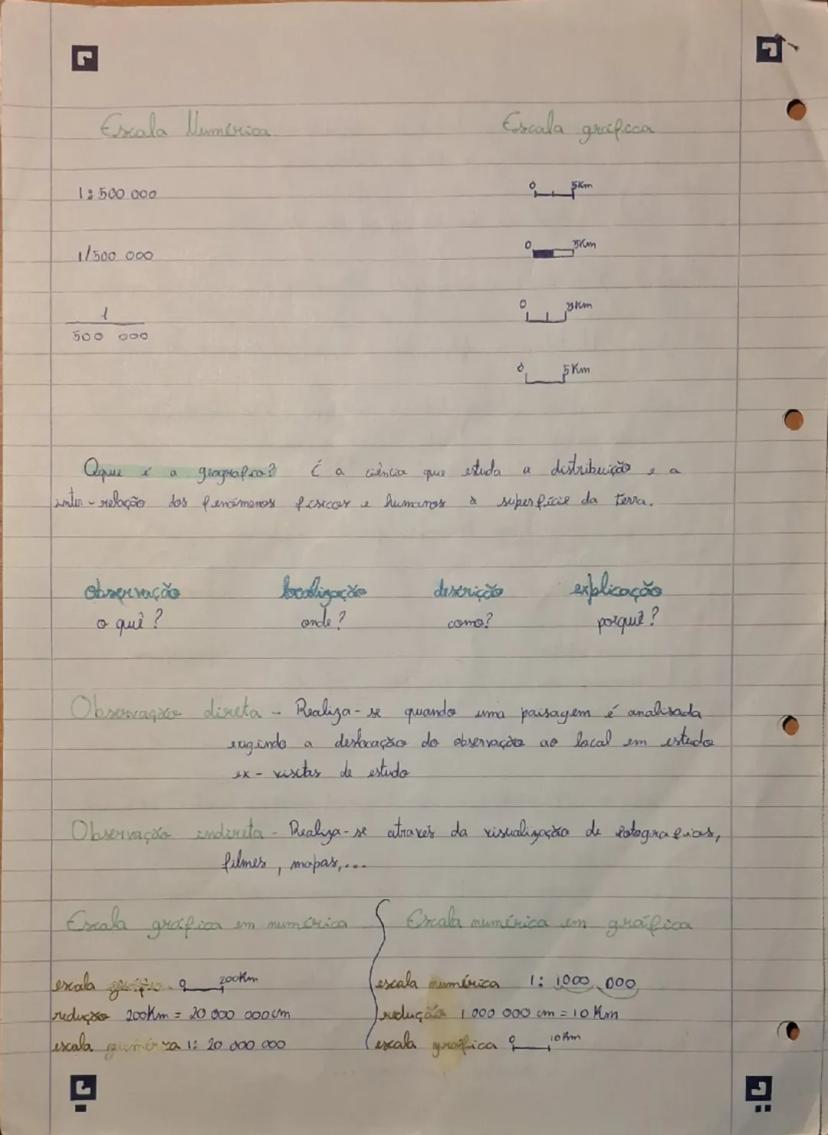 Escala Numérica
Escala gráfica
1:500 000
0 5Km
1/500 000
0 5Km
1
500 000
0 5Km
0 5Km
Oque é a geografia? É a ciência que estuda a distribuição e a
inter-relação dos fenómenos físicos e humanos à superfície da terra.
observação localização descrição explicação
o quê? onde? como? porquê?
Observação direta - Realiza-se quando uma paisagem é analisada
exigindo a deslocação do observação ao local em estudo
ex - visitas de estudo
Observação indireta - Realiza-se através da visualização de fotografias,
filmes, mapas,...
Escala gráfica em numérica
escala gráfica 0 200Km
redução 200Km = 20 000 000cm
escala numérica 1: 20 000 000
Escala numérica em gráfica
escala numérica 1: 1000 000
redução 1 000 000 cm = 10 Km
escala gráfica 0 10Km